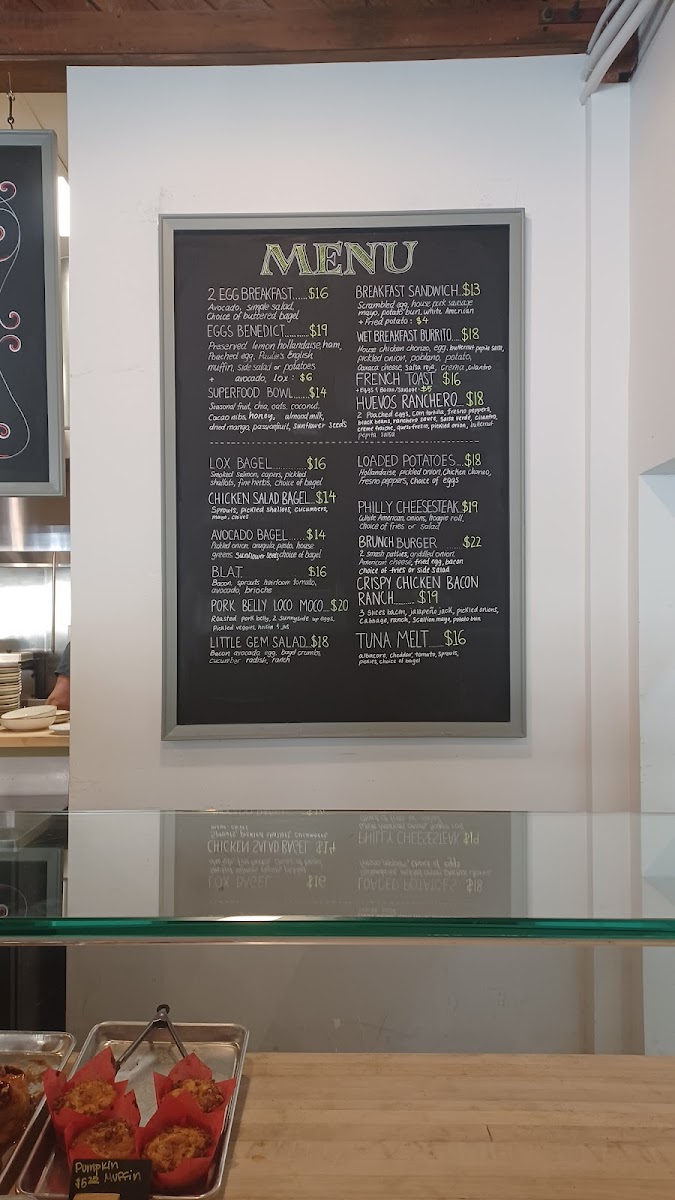 MENU
2 EGG BREAKFAST......$16
Avocado, simple salad,
Choice of buttered bagel
EGGS BENEDICT..........$19
Preserved lemon hollandaise, ham,
Poached egg, Paulie's English
muffin, side salad or potatoes
+ avocado, lox : $6
SUPERFOOD BOWL.....$14
Seasonal fruit, chia, oats, coconut,
Cacao nibs, honey, almond milk,
dried mango, passionfruit, sunflower seeds
BREAKFAST SANDWICH..$13
Scrambled egg, house pork sausage
mayo, potato bun, white American
+ Fried potato : $4
WET BREAKFAST BURRITO.....$18
House chicken chorizo, egg, butternut pepita salsa,
pickled onion, poblano, potato,
Oaxaca cheese, salsa roja, crema, cilantro
FRENCH TOAST $16
+ Eggs & Bacon/Sausage : $5
HUEVOS RANCHERO...$18
2 Poached eggs, corn tortilla, fresno peppers,
black beans, ranchero sauce, salsa verde, cilantro,
creme fraiche, queso fresco, pickled onion, butternut
pepita salsa
LOX BAGEL..........$16
Smoked salmon, capers, pickled
shallots, fine herbs, choice of bagel
CHICKEN SALAD BAGEL...$14
Sprouts, pickled shallots, cucumbers,
mayo, chives
AVOCADO BAGEL......$14
Pickled onion, arugula, pesto, house
greens, sunflower seeds, choice of bagel
BLAT $16
Bacon, sprouts, heirloom tomato,
avocado, brioche
PORK BELLY LOCO MOCO...$20
Roasted pork belly, 2 sunnyside up eggs,
Pickled veggies,
LITTLE GEM SALAD..$18
Bacon, avocado, egg, bagel crumbs,
cucumber, radish, ranch
LOADED POTATOES....$18
Hollandaise, pickled onion, Chicken Chorizo,
fresno peppers, choice of eggs
PHILLY CHEESESTEAK..$19
White American, onions, hoagie roll,
choice of fries or salad
BRUNCH BURGER $22
2 smash patties, griddled onion,
American cheese, fried egg, bacon
choice of fries or side salad
CRISPY CHICKEN BACON
RANCH......$19
3 slices bacon, jalapeño jack, pickled onions,
cabbage, ranch, scallion mayo, potato bun
TUNA MELT....$16
albacore, cheddar, tomato, sprouts,
pickles, choice of bagel
Pumpkin
$5.00 Muffin